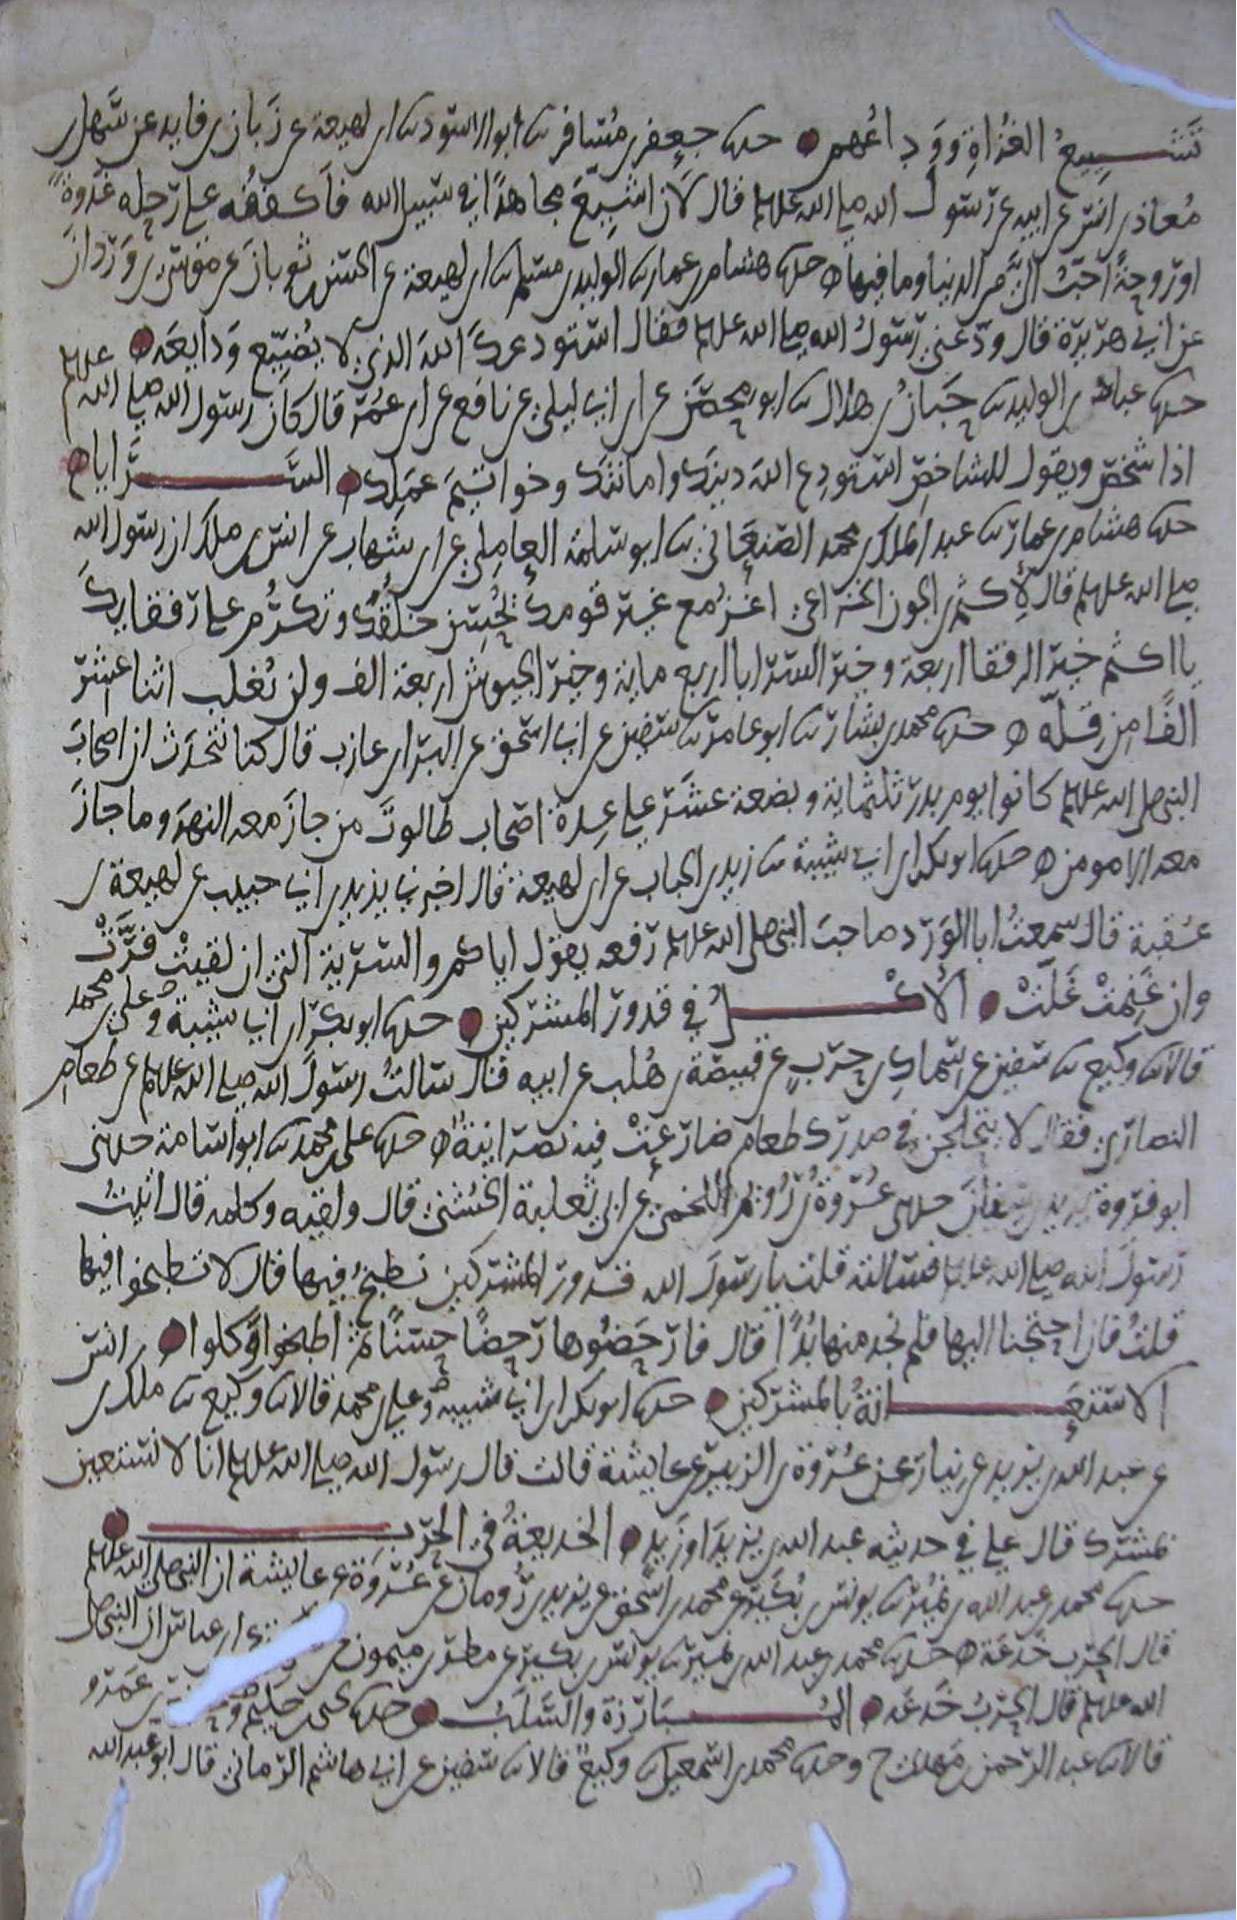 تشييع الغزاة ووداعهم حدثنا جعفر بن مسافر ثنا ابو الاسود ثنا ابن لهيعة عن زبان بن فايد عن سهل بن
معاذ بن انس عن ابيه عن رسول الله صلى الله عليه وسلم قال لان اشيع مجاهدا في سبيل الله فاكففه على رحله غدوة
او روحة احب الي من الدنيا وما فيها حدثنا هشام بن عمار ثنا الوليد بن مسلم ثنا ابن لهيعة عن الحسن بن ثوبان عن موسى بن وردان
عن ابي هريرة قال ودعني رسول الله صلى الله عليه وسلم فقال استودعك الله الذي لا يضيع ودايعه
حدثنا عباد بن الوليد ثنا حبان بن هلال ثنا ابو محصن عن ابن ابي ليلى عن نافع عن ابن عمر قال كان رسول الله صلى الله عليه وسلم
اذا شخص ويقول للشاخص استودع الله دينك وامانتك وخواتيم عملك السرايا
حدثنا هشام بن عمار ثنا عبد الملك بن محمد الصنعاني ثنا ابو سلمة العاملي عن ابن شهاب عن انس بن ملك ان رسول الله
صلى الله عليه وسلم قال لاكثم بن الجون الخزاعي اغز مع غير قومك يحسن خلقك وتكرم على رفقايك
يا اكثم خير الرفقا اربعة وخير السرايا اربع ماية وخير الجيوش اربعة الف ولن تغلب اثنا عشر
الفا من قلة حدثنا محمد بن بشار ثنا ابو عامر ثنا سفين عن ابي اسحق عن البرا بن عازب قال كنا نتحدث ان اصحاب
النبي صلى الله عليه وسلم كانوا يوم بدر ثلثماية وبضعة عشر على عدة اصحاب طالوت من جاز معه النهر وما جاز
معه الا مومن حدثنا ابو بكر بن ابي شيبة ثنا زيد بن الحباب عن ابن لهيعة قال اخبرني يزيد بن ابي حبيب عن لهيعة بن
عقبة قال سمعت ابا الورد صاحب النبي صلى الله عليه وسلم رفعه يقول اياكم والسرية التي ان لقيت فرت
وان غنمت غلت الاكل في قدور المشركين حدثنا ابو بكر بن ابي شيبة وعلي بن محمد
قالا ثنا وكيع ثنا سفين عن سماك بن حرب عن قبيصة بن هلب عن ابيه قال سالت رسول الله صلى الله عليه وسلم عن طعام
النصارى فقال لا يتخلجن في صدرك طعام ضارعت فيه نصرانية حدثنا علي بن محمد ثنا ابو اسامة حدثني
ابو فروة يزيد بن سنان حدثني عروة بن رويم اللخمي عن ابي ثعلبة الخشني قال ولقيه وكلمه قال اتيت
رسول الله صلى الله عليه وسلم فسالته قلت يا رسول الله قدور المشركين نطبخ فيها قال لا تطبخوا فيها
قلت فان احتجنا اليها فلم نجد منها بدا قال فارحضوها رحضا حسنا ثم اطبخوا وكلوا
الاستعانة بالمشركين حدثنا ابو بكر بن ابي شيبة وعلي بن محمد قالا ثنا وكيع ثنا ملك بن انس
عن عبد الله بن يزيد عن نيار عن عروة بن الزبير عن عايشة قالت قال رسول الله صلى الله عليه وسلم انا لا نستعين
بمشرك قال علي في حديثه عبد الله بن يزيد او زيد الخديعة في الحرب
حدثنا محمد بن عبد الله بن نمير ثنا يونس بن بكير عن محمد بن اسحق عن يزيد بن رومان عن عروة عن عايشة ان النبي صلى الله عليه وسلم
قال الحرب خدعة حدثنا محمد بن عبد الله بن نمير ثنا يونس بن بكير عن مطر بن ميمون عن ابن عباس ان النبي صلى
الله عليه وسلم قال الحرب خدعة المبارزة والسلب حدثنا يحيى بن حكيم بن عمرو
قالا ثنا عبد الرحمن بن مهدي ح وحدثنا محمد بن اسمعيل ثنا وكيع قالا ثنا سفين عن ابي هاشم الرماني قال ابو عبد الله